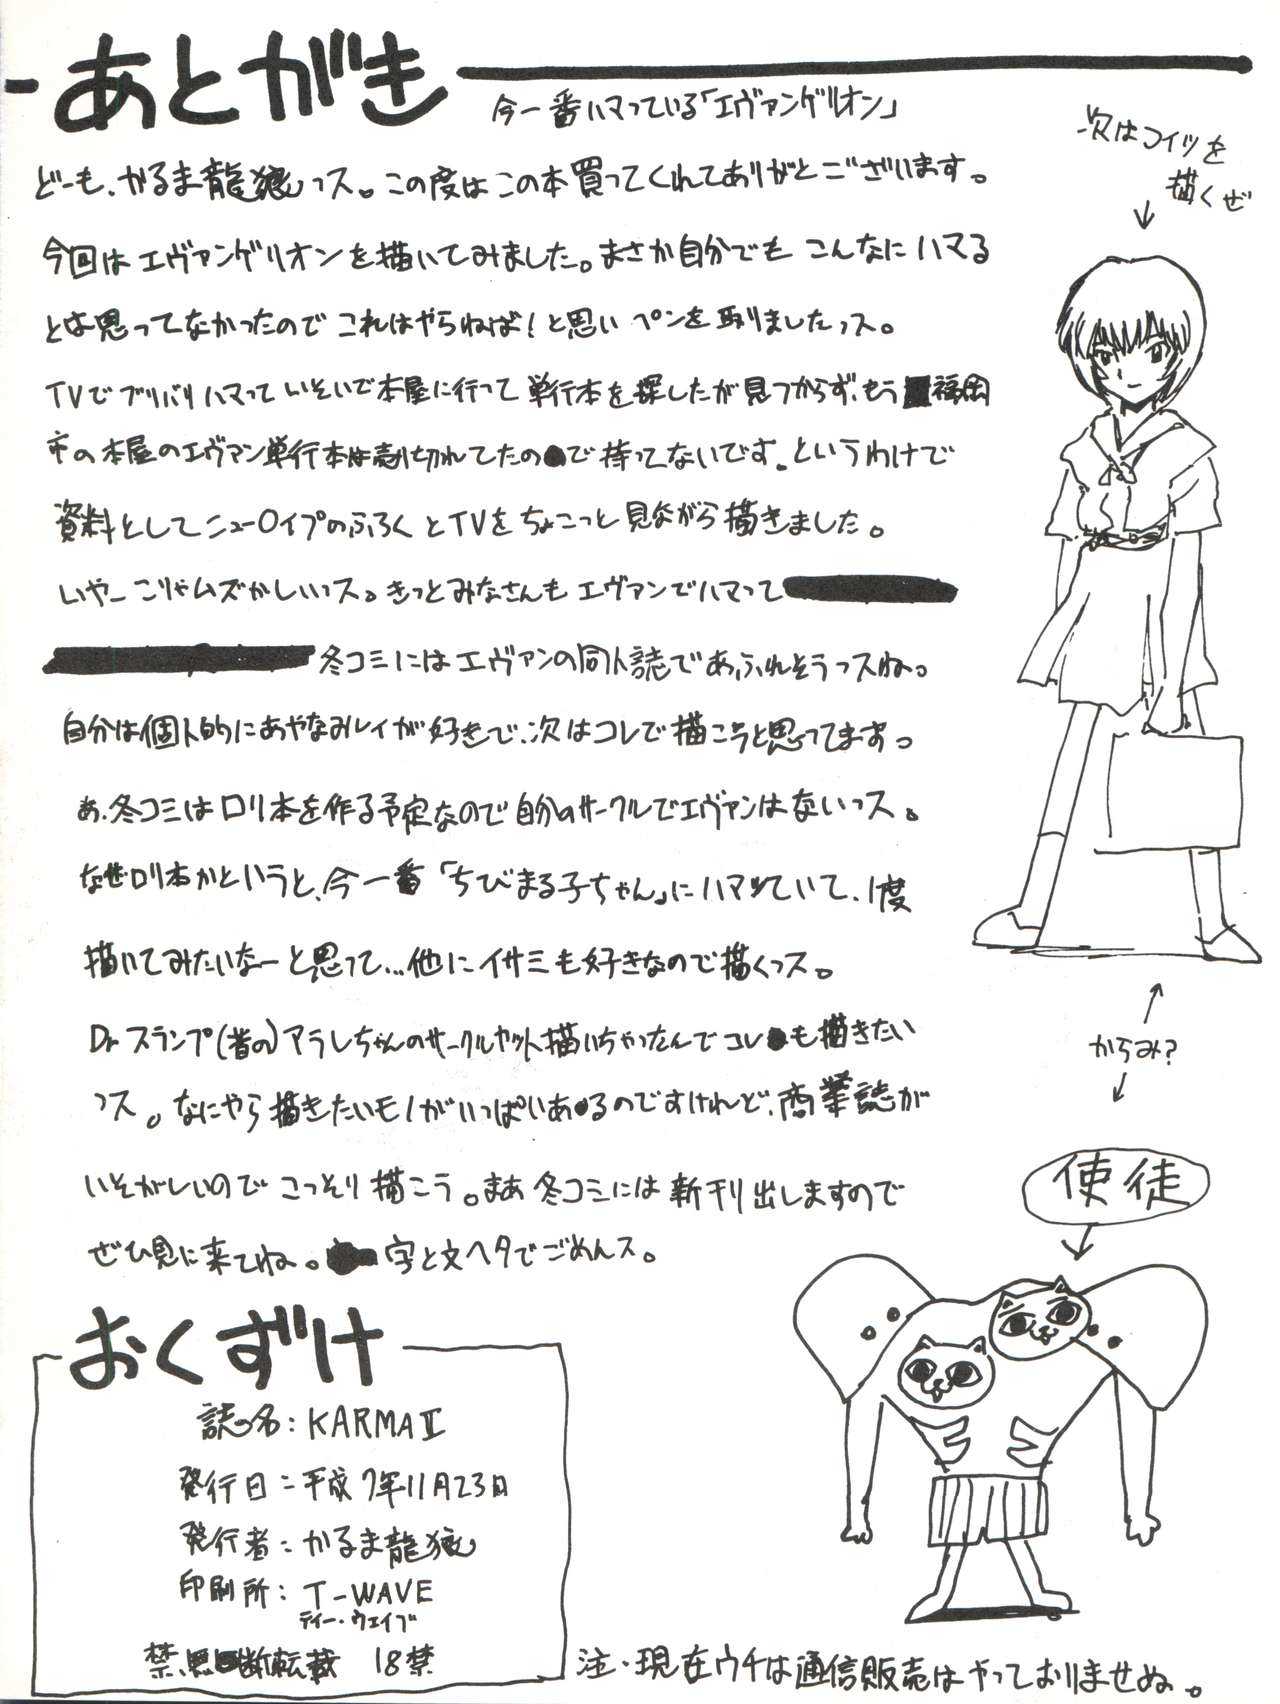 あとがき
今一番ハマっている「エヴァンゲリオン」
どーも、かるま龍狼っス。この度はこの本買ってくれてありがとございます。
今回はエヴァンゲリオンを描いてみました。まさか自分でも こんなにハマる
とは思ってなかったので これはやらねば!と思い ペンを取りましたっス。
TVでブリバリハマって いそいで本屋に行って 単行本を探したが見つからず、もう福岡
市の本屋のエヴァン単行本は売り切れてたので持ってないです。というわけで
資料として ニュー○イプのふろく とTVをちょこっと見ながら描きました。
いやー こりゃムズかしいっス。きっとみなさんも エヴァンでハマって
冬コミにはエヴァンの同人誌であふれそうっスね。
自分は個人的にあやなみレイが好きで、次はコレで描こうと思ってます。
あ、冬コミはロリ本を作る予定なので自分のサークルでエヴァンはないっス。
なぜロリ本かというと、今一番「ちびまる子ちゃん」にハマっていて、1度
描いてみたいなーと思って...他にイサミも好きなので描くっス。
Drスランプ(昔の)アラレちゃんのサークルカット描いちゃったんでコレも描きたい
っス。なにやら描きたいモノがいっぱいあるのですけれど、商業誌が
いそがしいのでこっそり描こう。まあ冬コミには新刊出しますので
ぜひ見に来てね。字と文ヘタでごめんス。
次はコイツを
描くぜ
からみ?
使徒
おくずけ
誌名:KARMAⅡ
発行日=平成7年11月23日
発行者:かるま龍狼
印刷所:T-WAVE
ティー・ウェイブ
禁無断転載 18禁
注・現在ウチは通信販売はやっておりませぬ。